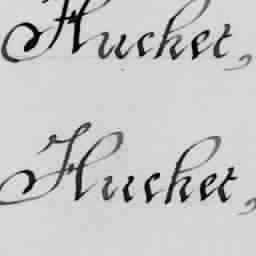 Hucket,
Hucket,